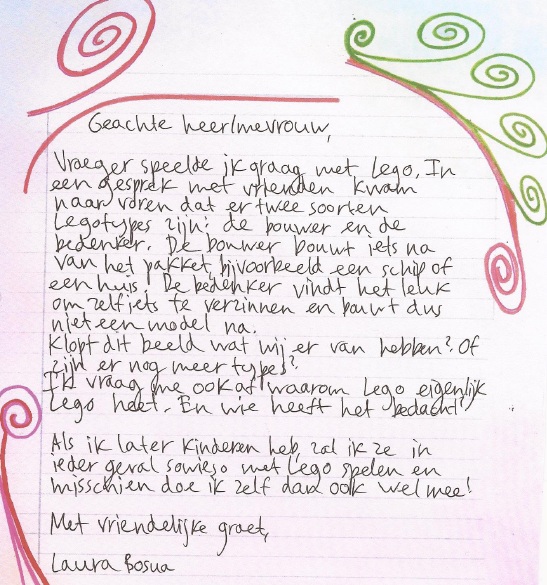 Geachte heer/mevrouw,
Vroeger speelde ik graag met Lego. In
een gesprek met vrienden kwam
naar voren dat er twee soorten
Legotypes zijn: de bouwer en de
bedenker. De bouwer bouwt iets na
van het pakket, bijvoorbeeld een schip of
een huis. De bedenker vindt het leuk
om zelf iets te verzinnen en bouwt dus
niet een model na.
Klopt dit beeld wat wij er van hebben? Of
zijn er nog meer types?
Ik vraag me ook af waarom Lego eigenlijk
Lego heet. En wie heeft het bedacht?
Als ik later kinderen heb, zal ik ze in
ieder geval sowieso met Lego spelen en
misschien doe ik zelf dan ook wel mee!
Met vriendelijke groet,
Laura Bosua